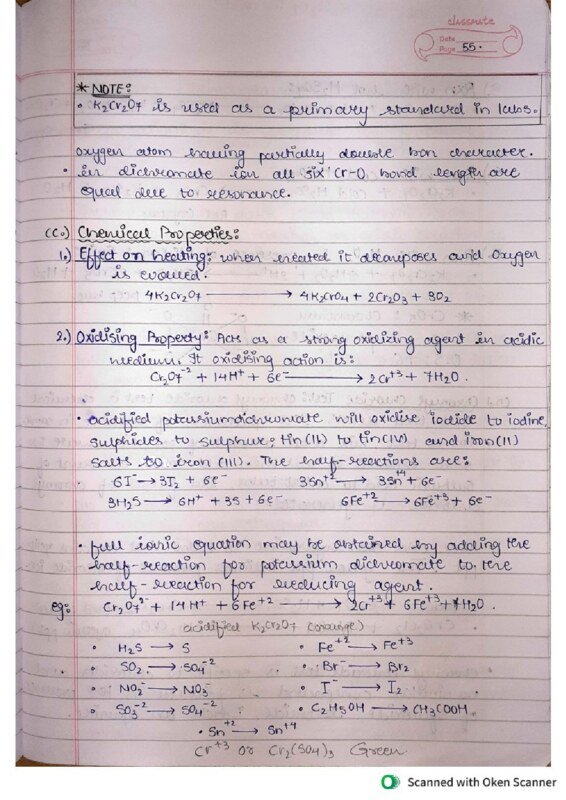 classmate
Date
Page 55.
* NOTE:
• K2Cr2O7 is used as a primary standard in labs.
oxygen atom having partially double bon character.
• in dichromate ion all six Cr-O bond length are
equal due to resonance.
(C.) Chemical Properties:
1.) Effect on heating: when heated it decomposes and Oxygen
is evolved.
4K2Cr2O7 → 4K2CrO4 + 2Cr2O3 + 3O2
2.) Oxidising Property: Acts as a strong oxidizing agent in acidic
medium. It oxidising action is:
Cr2O7^-2 + 14H^+ + 6e^- → 2Cr^+3 + 7H2O.
• acidified potassiumdichromate will oxidise iodide to iodine,
sulphides to sulphur, tin(II) to tin(IV) and iron(II)
salts to iron (III). The half-reactions are:
6I^- → 3I2 + 6e^- 3Sn^+2 → 3Sn^+4 + 6e^-
3H2S → 6H^+ + 3S + 6e^- 6Fe^+2 → 6Fe^+3 + 6e^-
• full ionic equation may be obtained by adding the
half-reaction for potassium dichromate to the
half-reaction for reducing agent.
eg: Cr2O7^2- + 14H^+ + 6Fe^+2 → 2Cr^+3 + 6Fe^+3 + 7H2O.
acidified K2Cr2O7 (orange)
• H2S → S • Fe^+2 → Fe^+3
• SO2 → SO4^-2 • Br^- → Br2
• NO2^- → NO3^- • I^- → I2
• SO3^-2 → SO4^-2 • C2H5OH → CH3COOH.
• Sn^+2 → Sn^+4
Cr^+3 or Cr2(SO4)3 Green.
Scanned with Oken Scanner